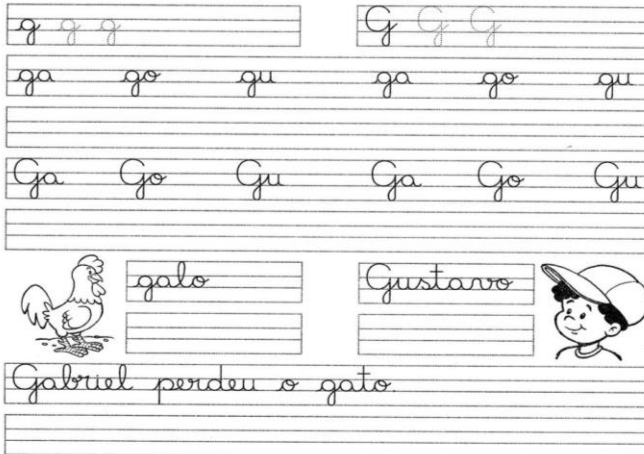 g g g G G G
ga go gu ga go gu
Ga Go Gu Ga Go Gu
galo Gustavo
Gabriel perdeu o gato.